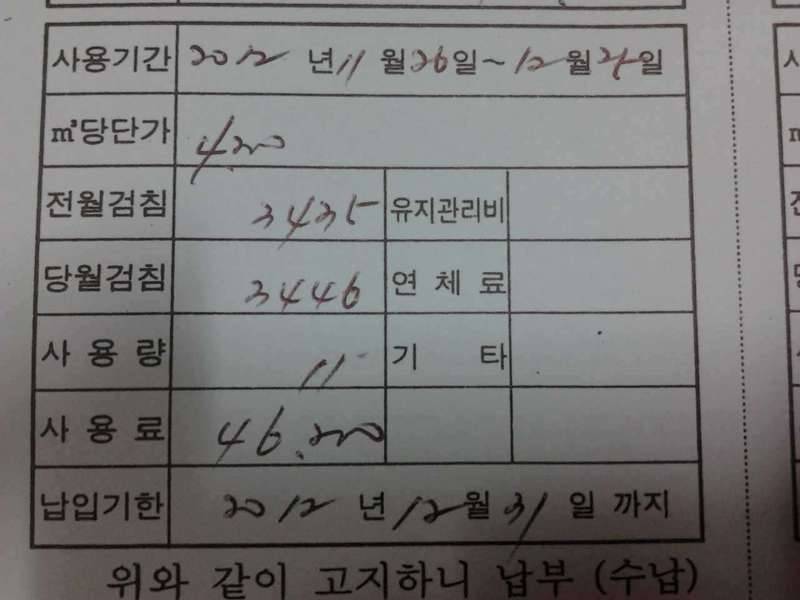 사용기간 2012 년 11 월 26일 ~ 12월 21일
㎥당단가 4,200
전월검침 3435 유지관리비
당월검침 3446 연 체 료
사 용 량 11 기 타
사 용 료 46,200
납입기한 2012 년 12월 31일 까지
위와 같이 고지하니 납부 (수납)